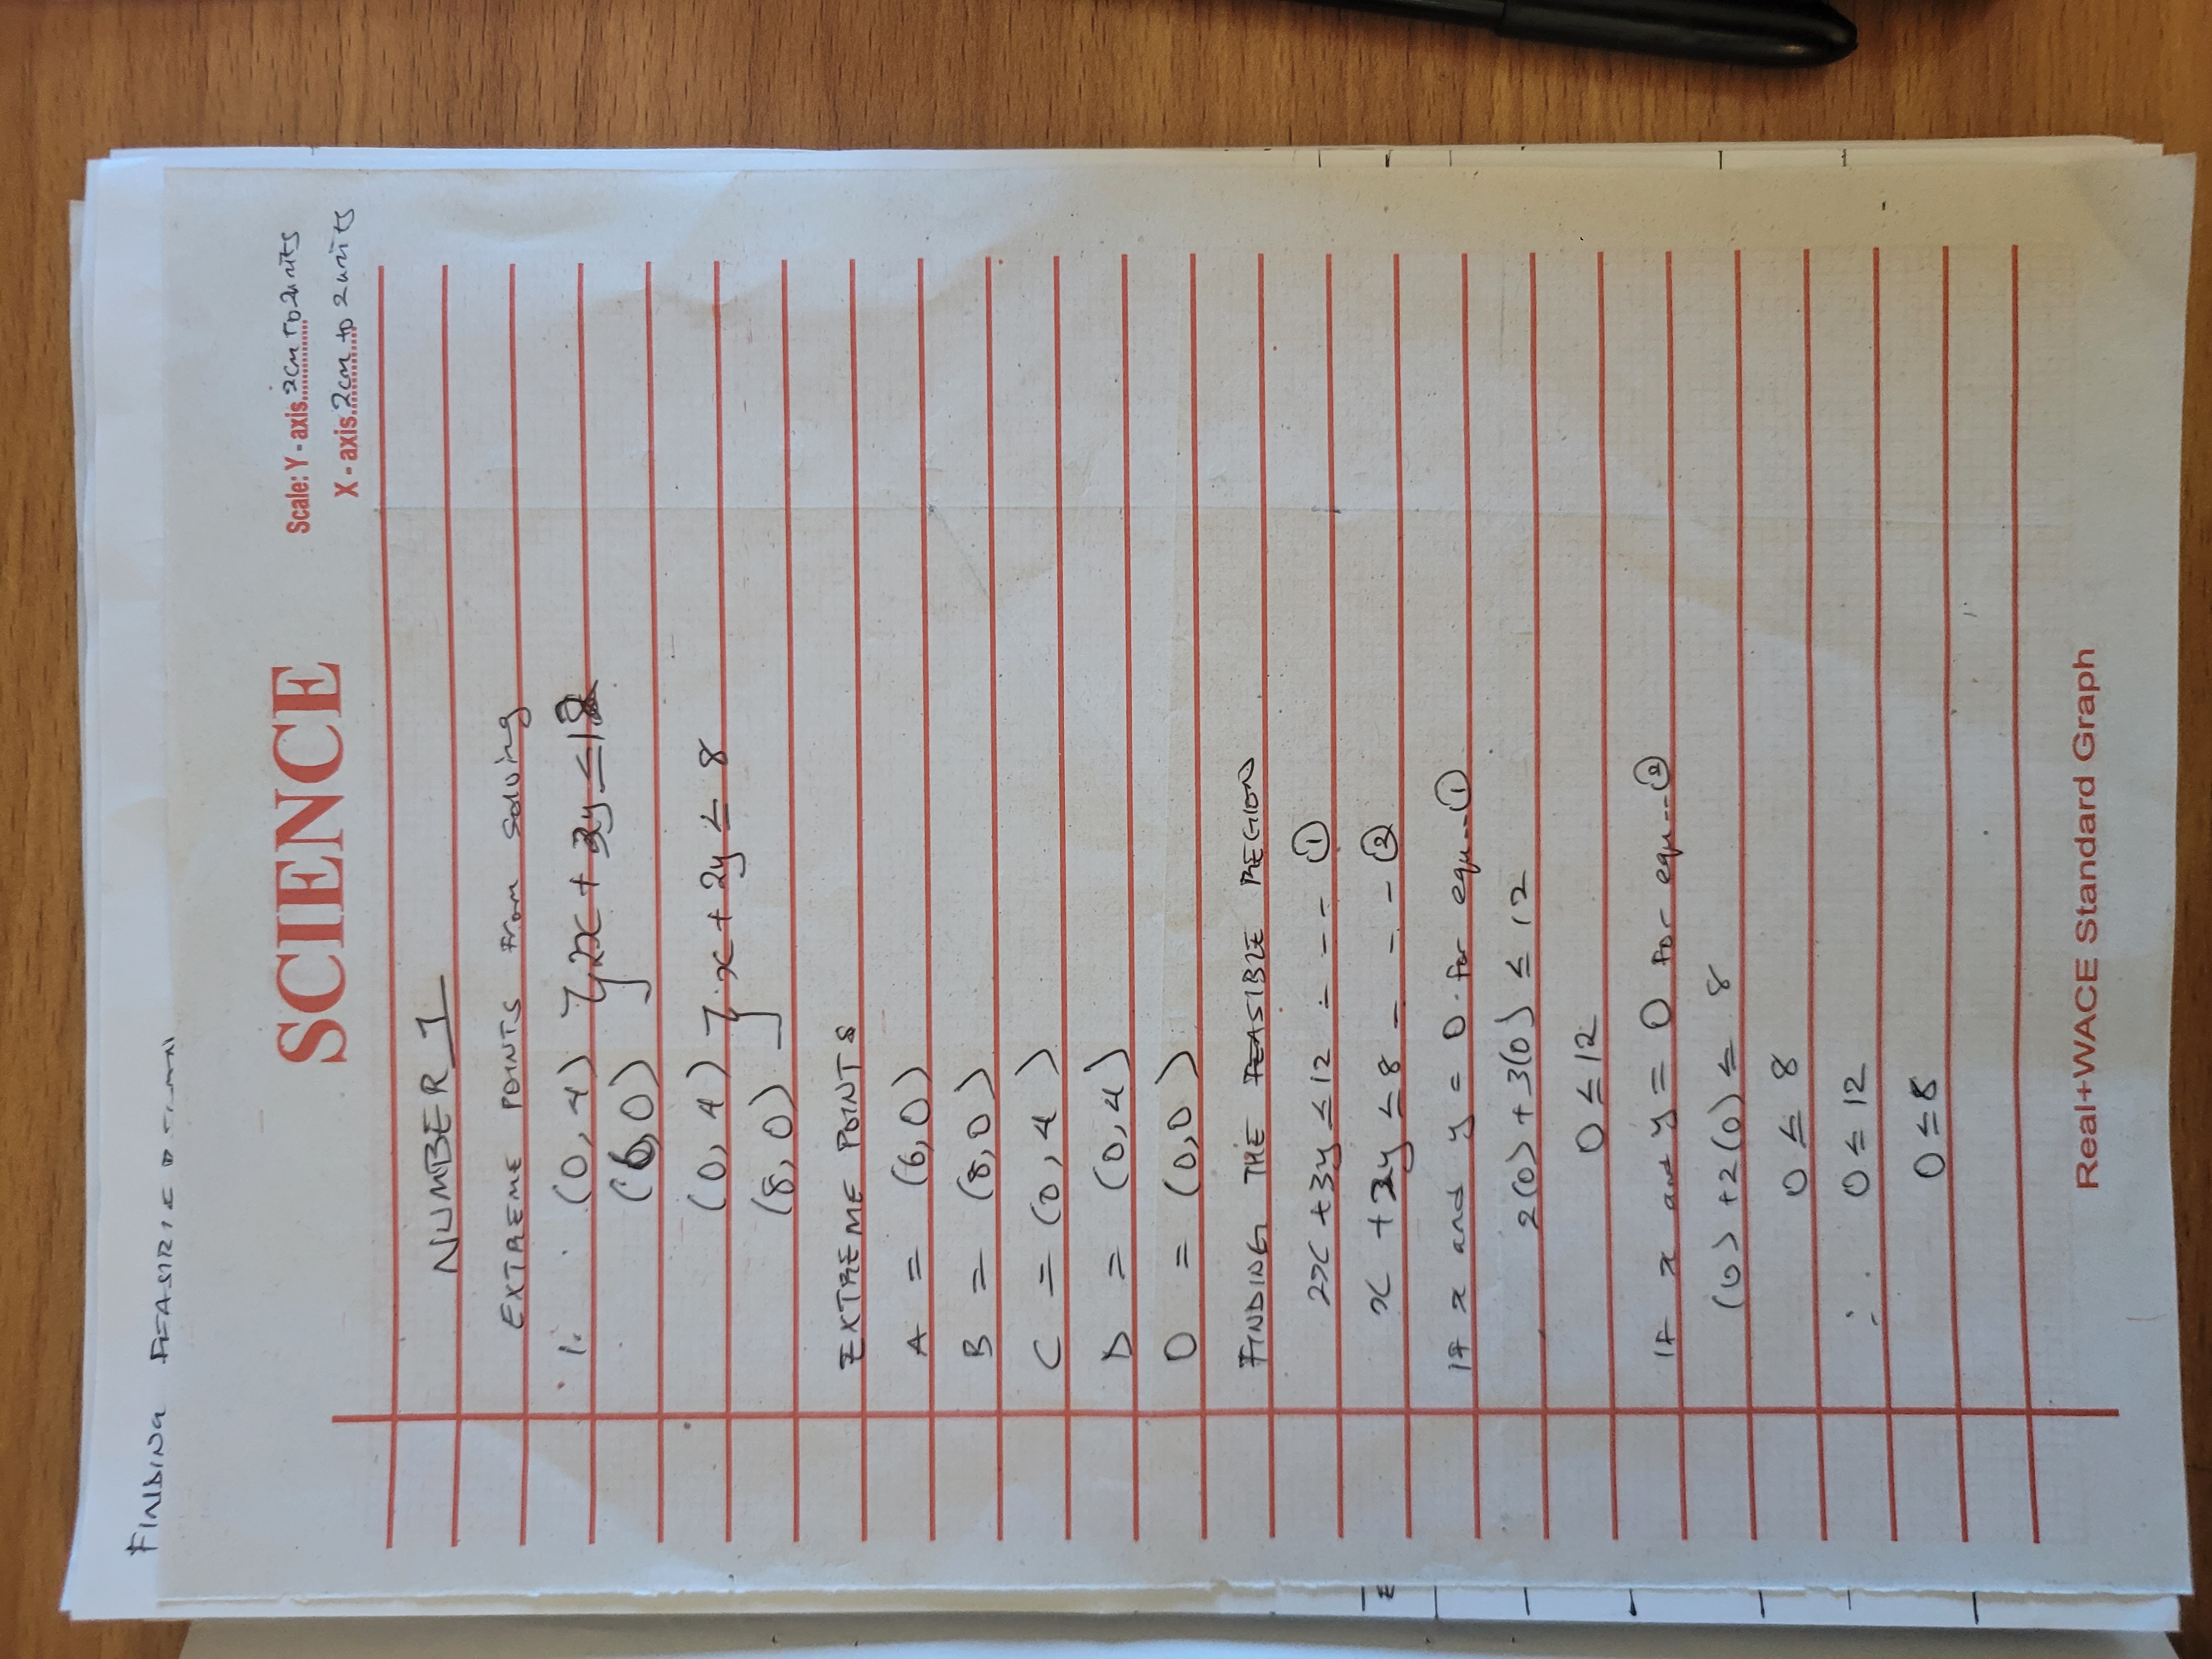 FINDING FEASIBLE REGION
SCIENCE
Scale: Y - axis 2cm to 2units
X - axis 2cm to 2 units
NUMBER 1
EXTREME POINTS From Solving
1. (0, 4) } 2x + 3y ≤ 12
(6,0)
(0, 4) } x + 2y ≤ 8
(8, 0)
EXTREME POINTS
A = (6,0)
B = (8,0)
C = (0, 4)
D = (0,4)
O = (0,0)
FINDING THE FEASIBLE REGION
2x + 3y ≤ 12 - - - ①
x + 2y ≤ 8 - - - ②
If x and y = 0 for equ--①
2(0) + 3(0) ≤ 12
0 ≤ 12
If x and y = 0 for equ--②
(0) + 2(0) ≤ 8
0 ≤ 8
∴ 0 ≤ 12
0 ≤ 8
Real+WACE Standard Graph